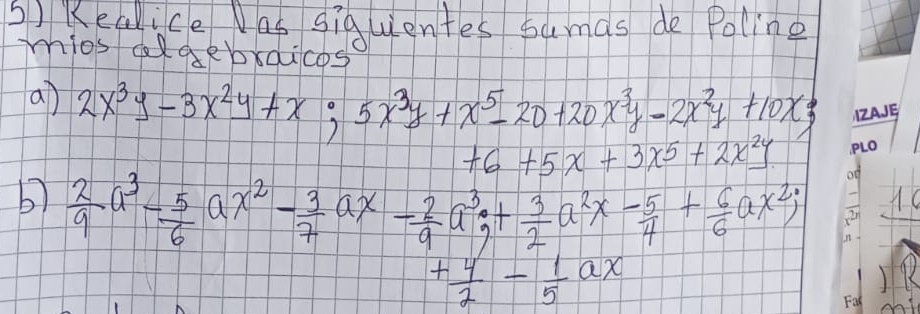 5) Realice las siguientes sumas de Polino
mios algebraicos
a) 2x³y - 3x²y + x ; 5x³y + x⁵ - 20 + 20x³y - 2x²y + 10x ;
+6 + 5x + 3x5 + 2x²y.
b) 2/9 a³ - 5/6 ax² - 3/7 ax - 2/9 a³ ; + 3/2 a²x - 5/4 + 6/6 ax² ;
+ 4/2 - 1/5 ax
IZAJE
PLO